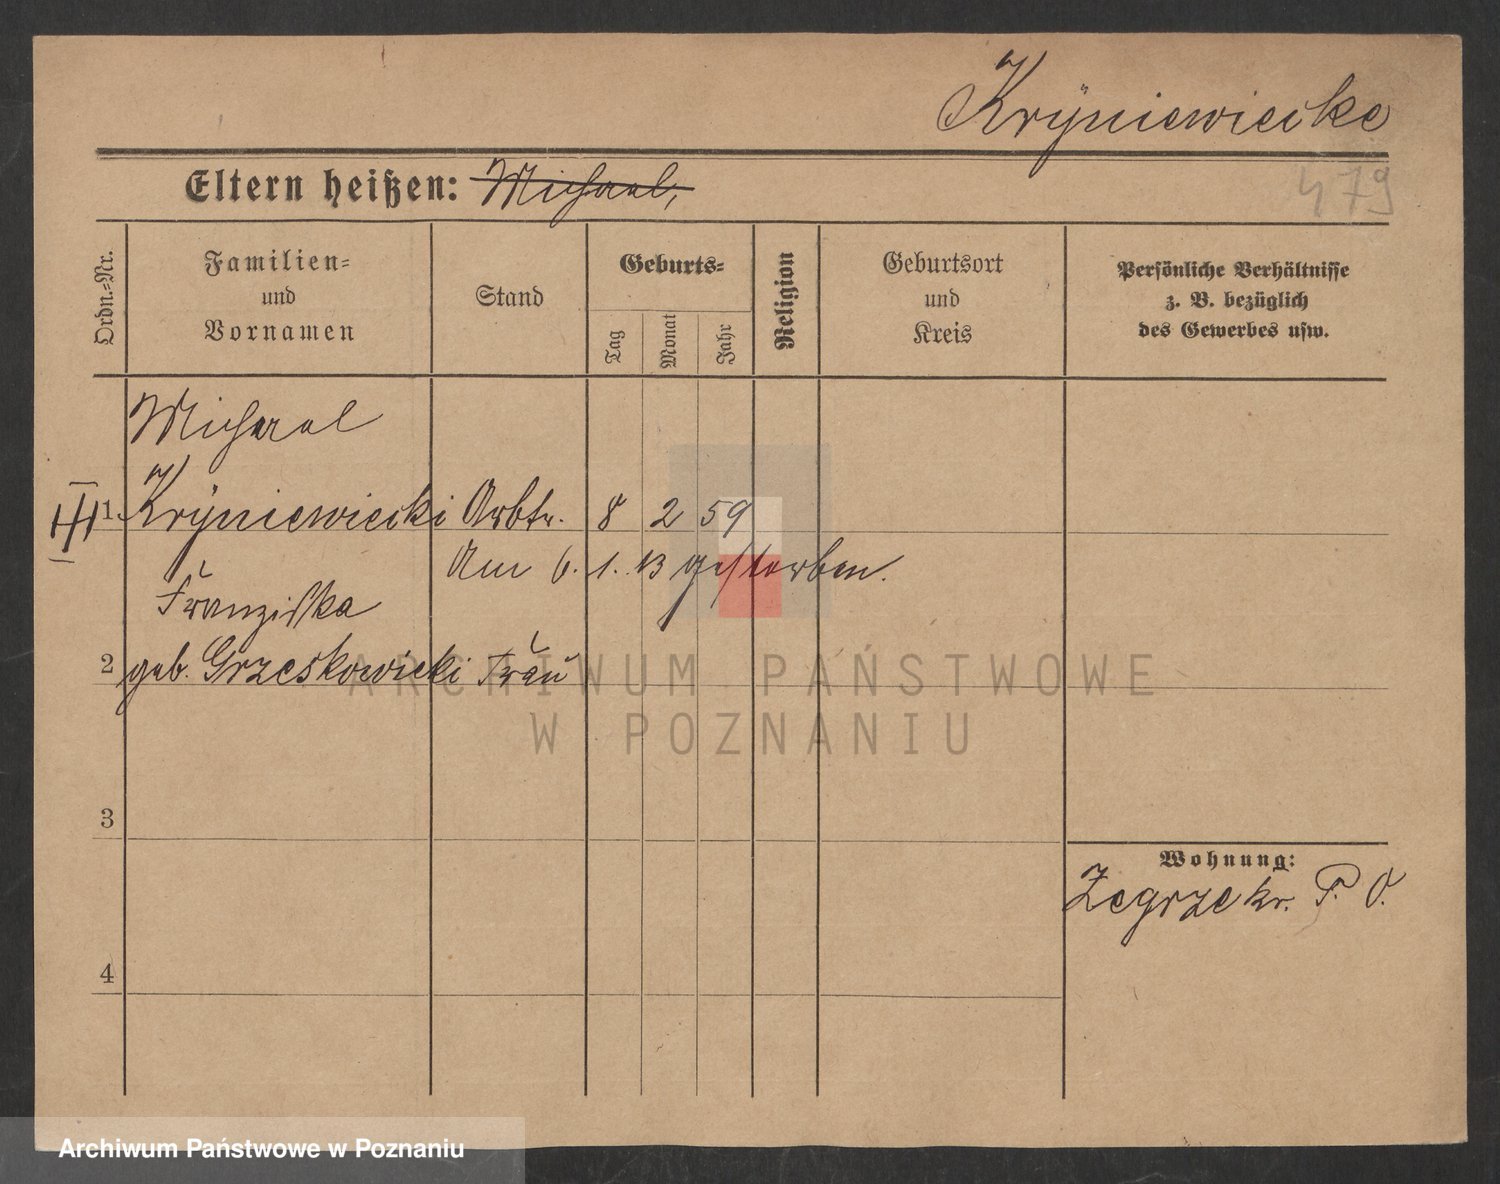 Krÿniewiecke
Eltern heißen: Michael,
479
Ordn.-Nr.
Familien-
und
Vornamen
Stand
Geburts-
Tag
Monat
Jahr
Religion
Geburtsort
und
Kreis
Persönliche Verhältnisse
z. B. bezüglich
des Gewerbes usw.
Michael
III 1. Krÿniewiecki Arbtr. 8 2 59
Am 6. 1. 13 gestorben.
Franziska
2 geb. Grzeskowicki Frau
ARCHIWUM PAŃSTWOWE
W POZNANIU
3
Wohnung:
Zegrze kr. P. O.
4
Archiwum Państwowe w Poznaniu